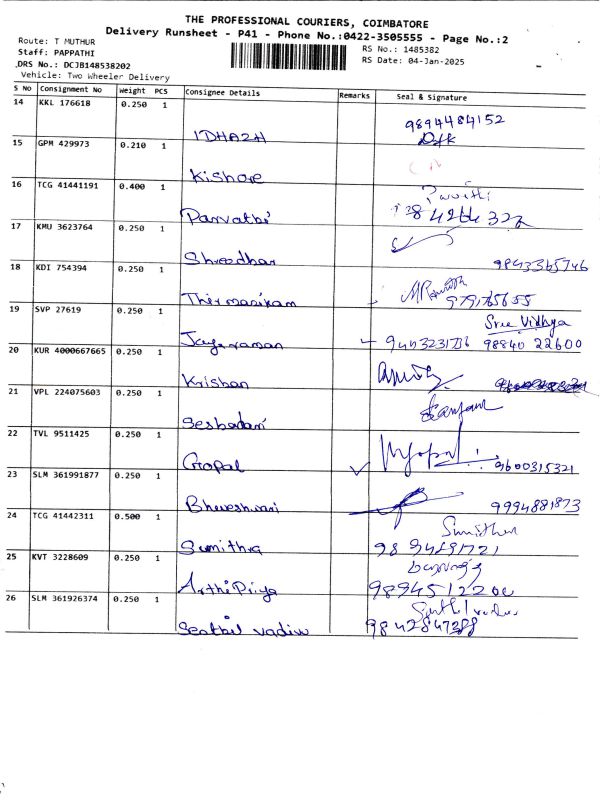 THE PROFESSIONAL COURIERS, COIMBATORE
Delivery Runsheet - P41 - Phone No.:0422-3505555 - Page No.:2
Route: T MUTHUR
RS No.: 1485382
Staff: PAPPATHI
RS Date: 04-Jan-2025
DRS No.: DCJB148538202
Vehicle: Two Wheeler Delivery
S No Consignment No Weight PCS Consignee Details Remarks Seal & Signature
14 KKL 176618 0.250 1
9894484152
IDHAZH
15 GPM 429973 0.210 1
Kishore
16 TCG 41441191 0.400 1
Parvathi
17 KMU 3623764 0.250 1
Shreedhar 9843365746
18 KDI 754394 0.250 1
19 SVP 27619 0.250 1
Sree Vidhya
Jayaraman 98840 22600
20 KUR 4000667665 0.250 1
Krishan
21 VPL 224075603 0.250 1
Seshadari
22 TVL 9511425 0.250 1
Gopal 9600315321
23 SLM 361991877 0.250 1
Bhuveshwari 9994881873
24 TCG 41442311 0.500 1
Sumithra
25 KVT 3228609 0.250 1
ArthiPriya 9894512200
26 SLM 361926374 0.250 1
Senthil vadivu 9842847388